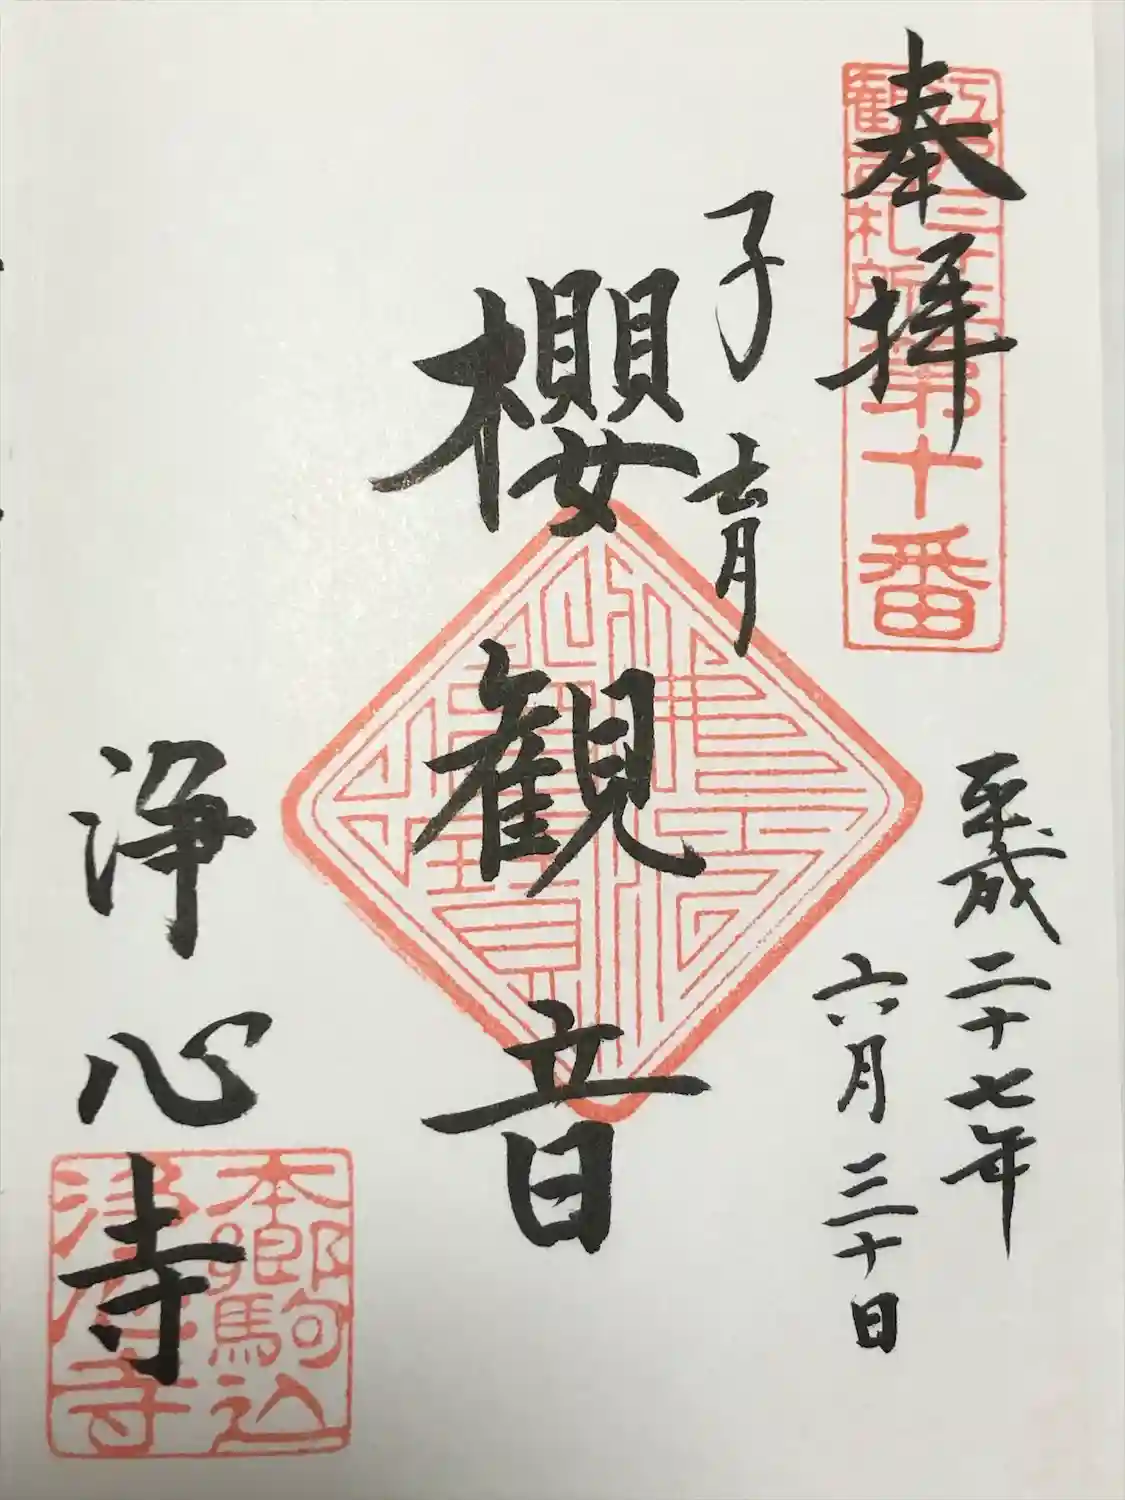 奉拝
江戸三十三
観音札所第十番
平成二十七年
六月三十日
子育
櫻観音
浄心寺
本郷駒込
浄心寺